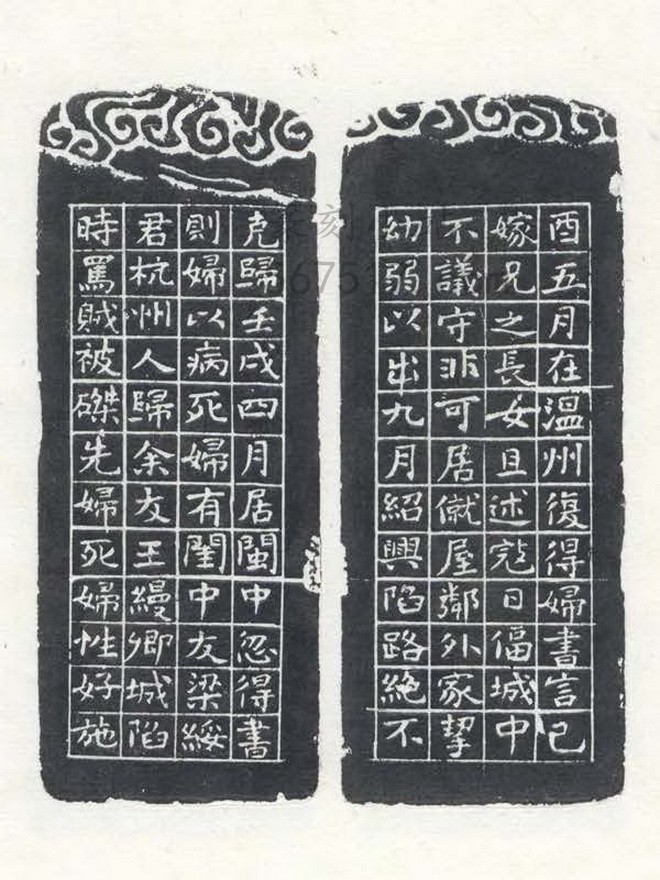 酉五月在溫州復得婦書言已
嫁兄之長女且述寇日偪城中
不議守非可居僦屋鄰外家挈
幼弱以出九月紹興陷路絕不
克歸壬戌四月居閩中忽得書
則婦以病死婦有閨中友梁綏
君杭州人歸余友王縵卿城陷
時罵賊被磔先婦死婦性好施